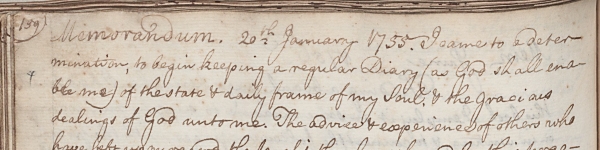 139
Memorandum. 20th January 1755. I came to a deter-
mination, to begin keeping a regular Diary (as God shall ena-
ble me) of the state & daily frame of my Soul, & the gracious
dealings of God unto me. The advice & experience of others who
have left